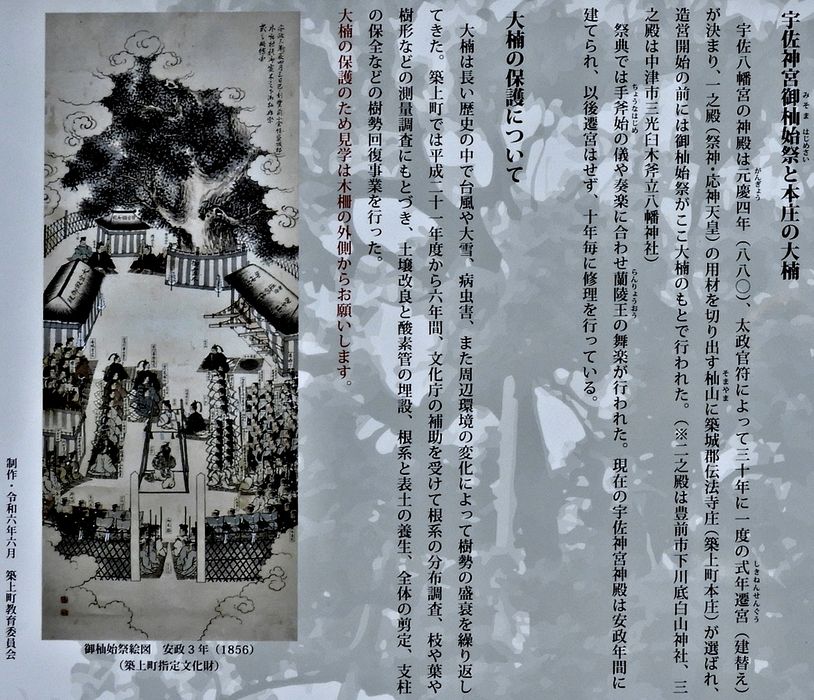 宇佐神宮御杣始祭と本庄の大楠
みそま はじめさい
宇佐八幡宮の神殿は元慶四年(八八〇)、太政官符によって三十年に一度の式年遷宮(建替え)
がんぎょう
しきねんせんぐう
が決まり、一之殿(祭神・応神天皇)の用材を切り出す杣山に築城郡伝法寺庄(築上町本庄)が選ばれ、
そまやま
造営開始の前には御杣始祭がここ大楠のもとで行われた。(※二之殿は豊前市下川底白山神社、三
之殿は中津市三光臼木斧立八幡神社)
祭典では手斧始の儀や奏楽に合わせ蘭陵王の舞楽が行われた。現在の宇佐神宮神殿は安政年間に
ちょうなはじめ
らんりょうおう
建てられ、以後遷宮はせず、十年毎に修理を行っている。
大楠の保護について
大楠は長い歴史の中で台風や大雪、病虫害、また周辺環境の変化によって樹勢の盛衰を繰り返し
てきた。築上町では平成二十一年度から六年間、文化庁の補助を受けて根系の分布調査、枝や葉や
樹形などの測量調査にもとづき、土壌改良と酸素管の埋設、根系と表土の養生、全体の剪定、支柱
の保全などの樹勢回復事業を行った。
大楠の保護のため見学は木柵の外側からお願いします。
御杣始祭絵図 安政3年(1856)
(築上町指定文化財)
制作・令和六年六月 築上町教育委員会